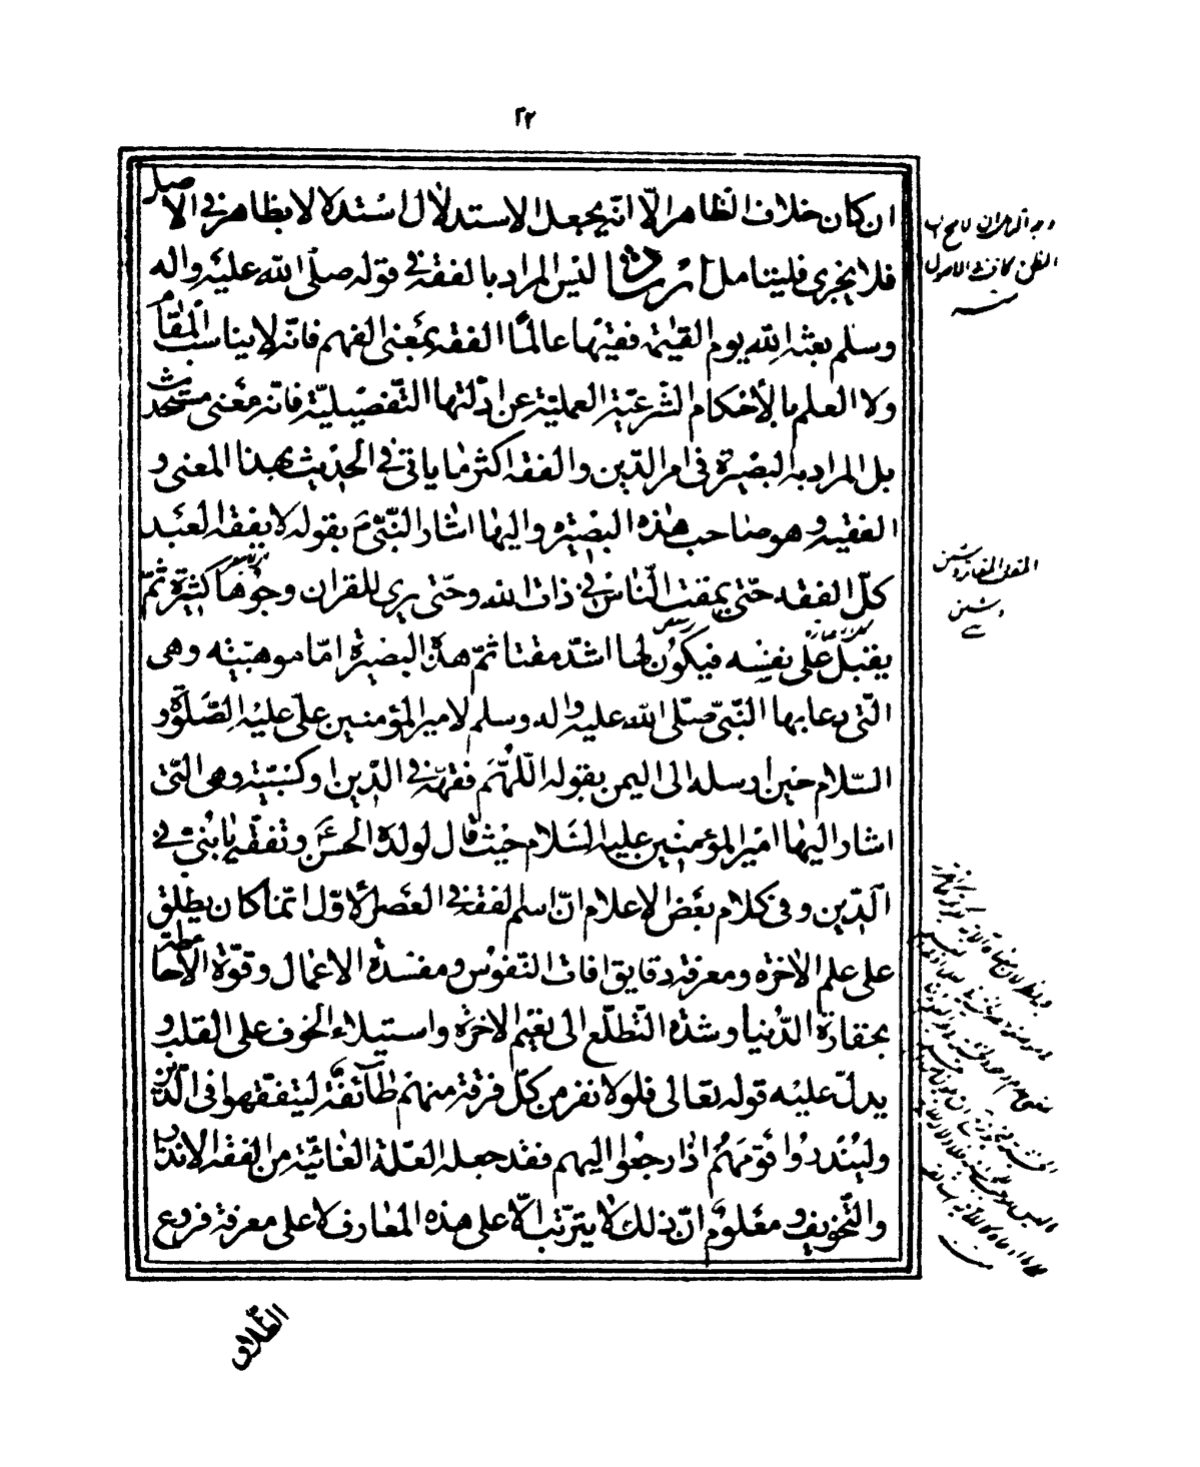 ٢٢
ان كان خلاف الظاهر الّا انّه يجعل الاستدلال استدلالا بظاهر فى الاصل
فلا يجرى فليتامل ارشاد ليس المراد بالفقه فى قوله صلى الله عليه واله
وسلم بعثه الله يوم القيمة فقيها عالمًا الفقه بمعنى الفهم فانّه لا يناسب المقام
ولا العلم بالأحكام الشرعيّة العمليّة عن ادلّتها التّفصيليّة فانّه معنى مستحدث
بل المراد به البصيرة فى امر الدّين والفقه اكثر ما ياتى فى الحديث بهذا المعنى و
الفقيه هو صاحب هذه البصيرة واليها اشار النّبىّ ص بقوله لا يفقه العبد
كلّ الفقه حتّى يمقت النّاس فى ذات الله وحتّى يرى للقران وجوها كثيرة ثمّ
يقبل على نفسه فيكون لها اشدّ مقتا ثمّ هذه البصيرة امّا موهبيّة وهى
الّتى دعا بها النّبىّ صلّى الله عليه واله وسلم لامير المؤمنين علىّ عليه الصّلوة و
السّلام حين ارسله الى اليمن بقوله اللّهمّ فقّهه فى الدّين او كسبيّة وهى الّتى
اشار اليها امير المؤمنين عليه السّلام حيث قال لولده الحسن ع وتفقّه يا بنىّ فى
الدّين وفى كلام بعض الاعلام انّ اسم الفقه فى العصر الأوّل انّما كان يطلق
على علم الآخرة ومعرفة دقايق افات النّفوس ومفسدة الاعمال وقوّة الاحاطة
بحقارة الدّنيا وشدّة التّطلّع الى نعيم الاخرة واستيلاء الخوف على القلب و
يدلّ عليه قوله تعالى فلولا نفر من كلّ فرقة منهم طآئفة ليتفقّهوا فى الدّين
ولينذروا قومهم اذا رجعوا اليهم فقد جعله العلّة الغائيّة من الفقه الانذار
والتّخويف و معلوم انّ ذلك لا يترتّب الّا على هذه المعارف لا على معرفة فروع
الطّلاق